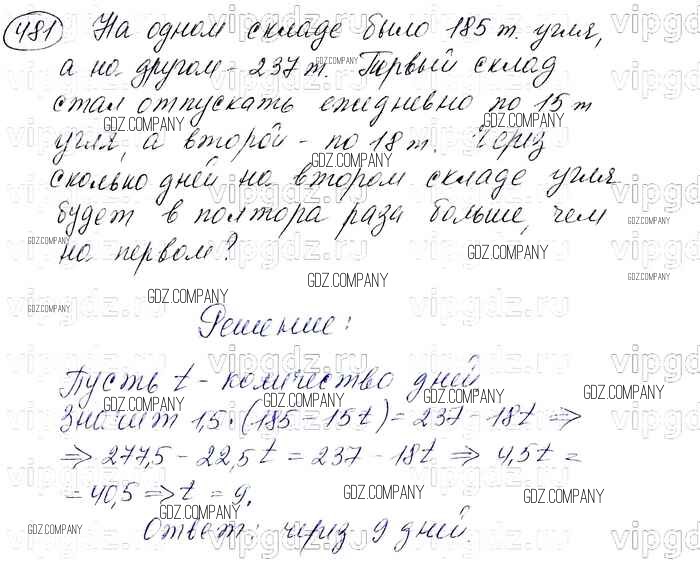 481 На одном складе было 185 т. угля,
а на другом - 237 т. Первый склад
стал отпускать ежедневно по 15 т
угля, а второй - по 18 т. Через
сколько дней на втором складе угля
будет в полтора раза больше, чем
на первом?
Решение:
Пусть t - количество дней
Значит 1,5·(185 - 15t) = 237 - 18t ⇒
⇒ 277,5 - 22,5t = 237 - 18t ⇒ 4,5t =
= 40,5 ⇒ t = 9.
Ответ: через 9 дней.
GDZ.COMPANY
vipgdz.ru